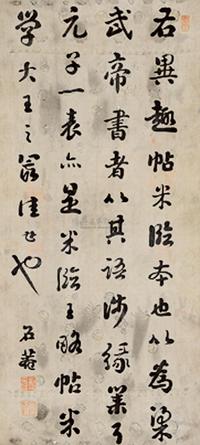 右異趣帖米臨本也以為梁
武帝書者以其語涉緣業可
元子一表亦是米臨王略帖米
学大王之最佳者也
石菴